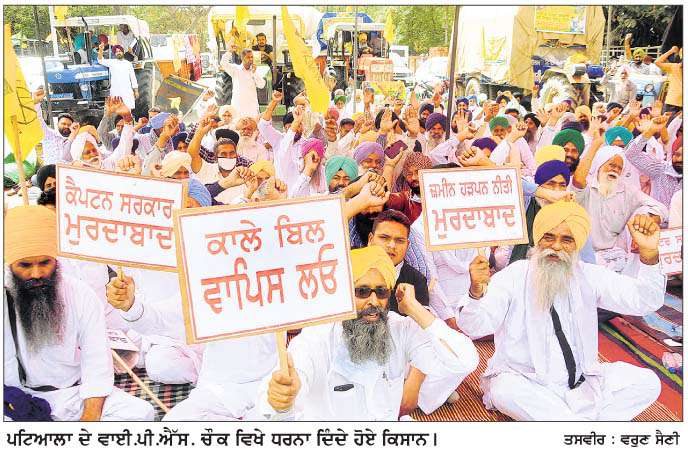 ਕੈਪਟਨ ਸਰਕਾਰ
ਮੁਰਦਾਬਾਦ
ਕਾਲੇ ਬਿਲ
ਵਾਪਿਸ ਲਓ
ਜ਼ਮੀਨ ਹੜਪਨ ਨੀਤੀ
ਮੁਰਦਾਬਾਦ
ਪਟਿਆਲਾ ਦੇ ਵਾਈ.ਪੀ.ਐੱਸ. ਚੌਕ ਵਿਖੇ ਧਰਨਾ ਦਿੰਦੇ ਹੋਏ ਕਿਸਾਨ।
ਤਸਵੀਰ : ਵਰੁਣ ਸੈਣੀ